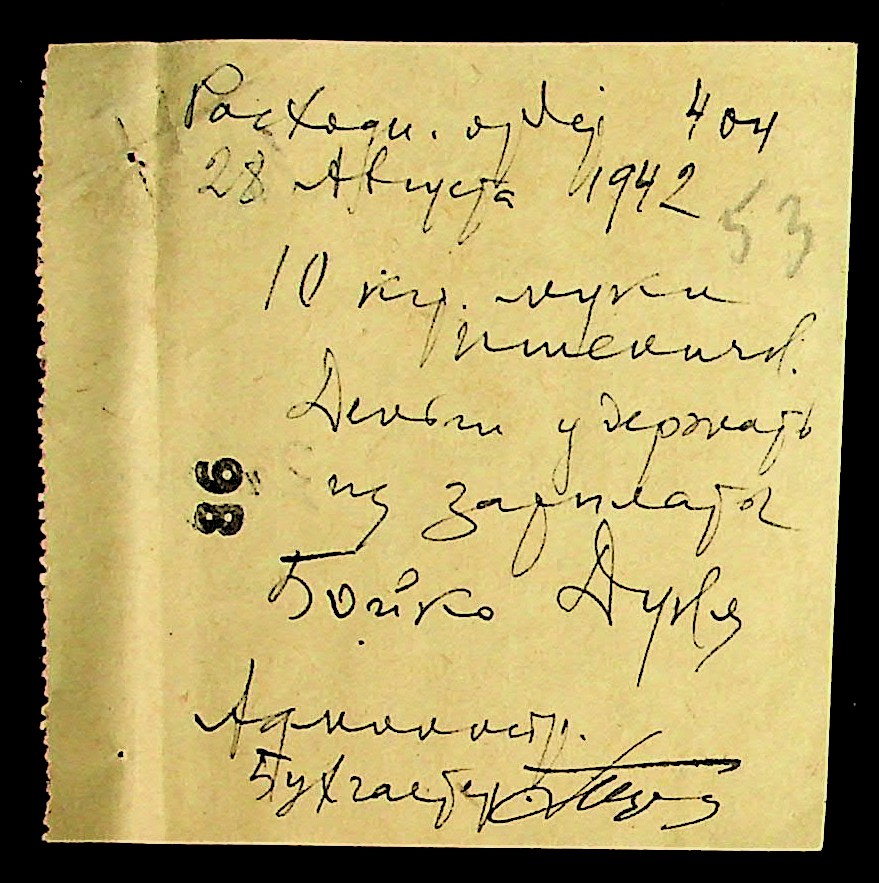 Расходн. ордер 404
28 Августа 1942
53
10 кгр. муки
пшеничн.
Деньги удержать
из зарплаты
98
Бойко
Администр.
Бухгалтер